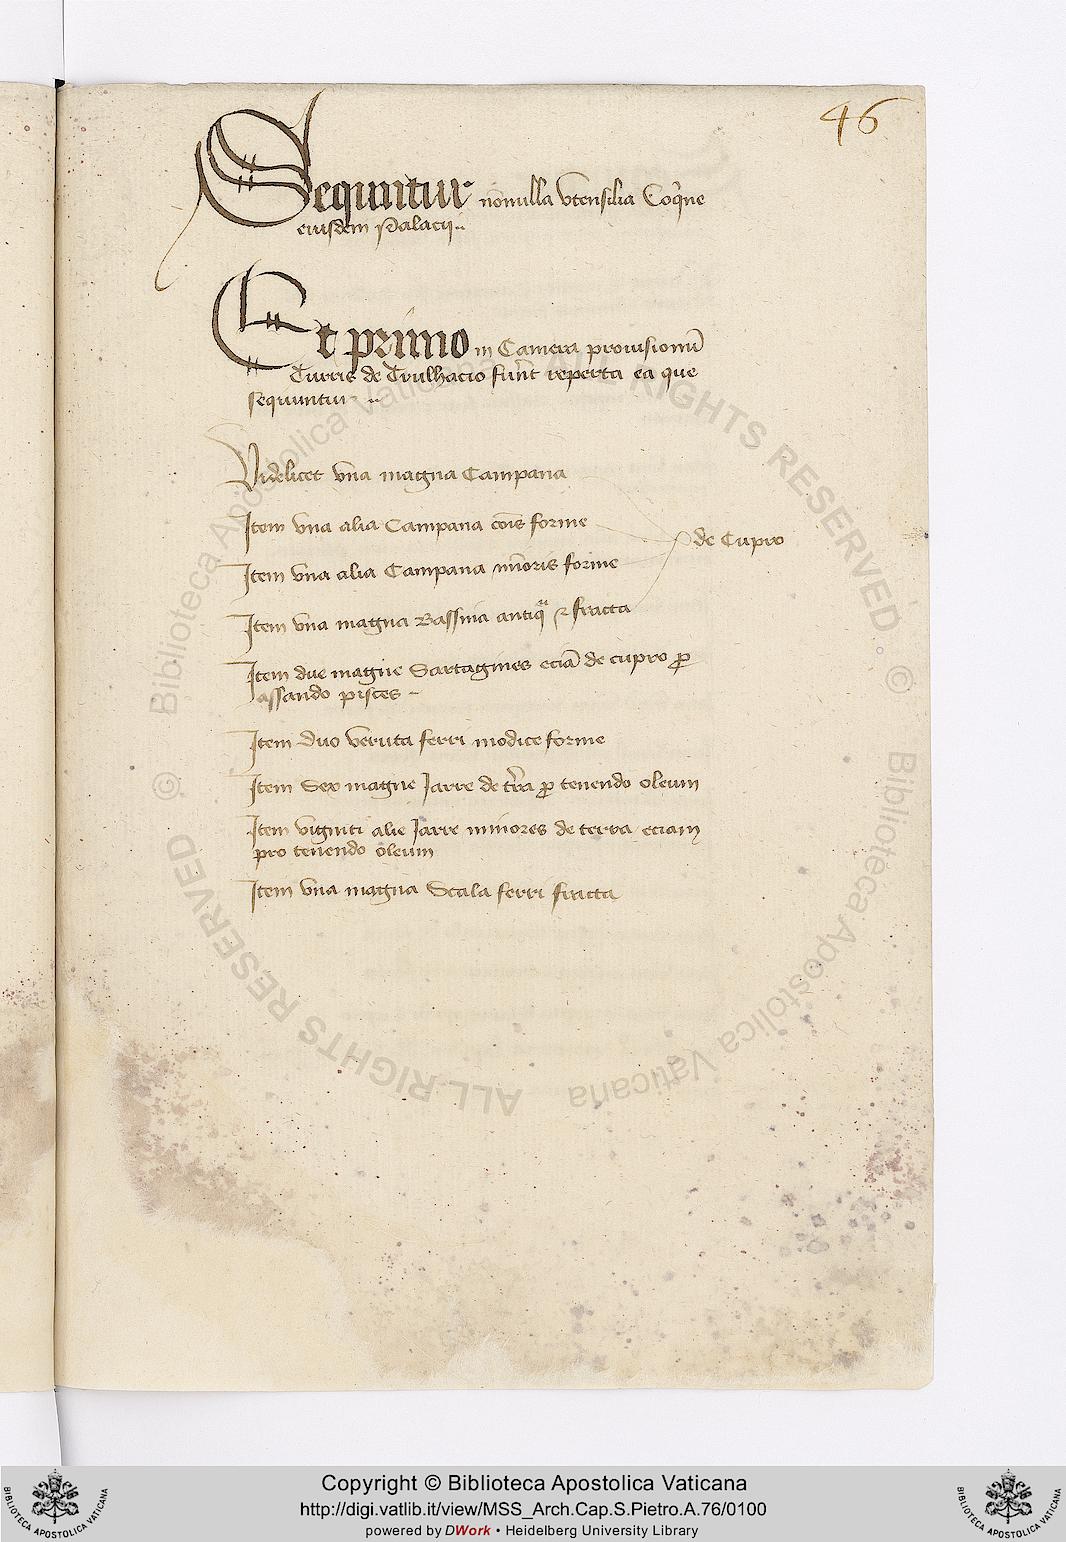 46
Sequntur nōnulla vtensilia Coq̄ne
eiusdem Palacij..
Et primo in Camera prouisionū
Turris de Trulhacio fuñt reperta ea que
sequuntur ..
Videlicet vna magna Campana
Item vna alia Campana cōis forme
de Cupro
Item vna alia Campana mīoris forme
Item vna magna Bassina antiqᵃ ⁊ fracta
Item due magne Sartagines eciā de cupro ꝓ
assando pisces -
Item duo veruta ferri modice forme
Item Sex magne Jarre de tr̄ra ꝓ tenendo oleum
Item viginti alie Jarre minores de terra eciam
pro tenendo oleum
Item vna magna Scala ferri fracta
© Biblioteca Apostolica Vaticana ALL RIGHTS RESERVED
© Biblioteca Apostolica Vaticana ALL RIGHTS RESERVED
Copyright © Biblioteca Apostolica Vaticana
http://digi.vatlib.it/view/MSS_Arch.Cap.S.Pietro.A.76/0100
powered by DWork • Heidelberg University Library
BIBLIOTECA APOSTOLICA VATICANA
BIBLIOTECA APOSTOLICA VATICANA